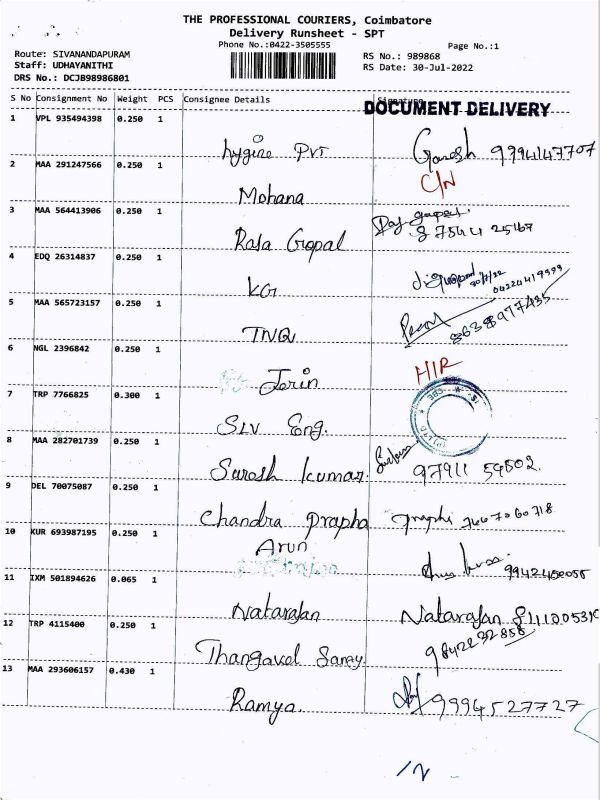 THE PROFESSIONAL COURIERS, Coimbatore
Delivery Runsheet - SPT
Phone No.:0422-3505555
Page No.:1
Route: SIVANANDAPURAM
Staff: UDHAYANITHI
DRS No.: DCJB98986801
RS No.: 989868
RS Date: 30-Jul-2022
S No Consignment No Weight PCS Consignee Details Signature
DOCUMENT DELIVERY
1 VPL 935494398 0.250 1
hygine Pvt Ganesh 9994147707
2 MAA 291247566 0.250 1
C/N
Mohana
3 MAA 564413906 0.250 1
Raja Gopal
4 EDQ 26314837 0.250 1
KG 30/7/22 04224419999
5 MAA 565723157 0.250 1
TNQ 8638977435
6 NGL 2396842 0.250 1
HIR
Jerin
7 TRP 7766825 0.300 1
SLV Eng.
8 MAA 282701739 0.250 1
Suresh kumar. 97911 59802.
9 DEL 70075087 0.250 1
Chandra Prapha
10 KUR 693987195 0.250 1
Arun 9942450055
11 IXM 501894626 0.065 1
Natarajan Natarajan
12 TRP 4115400 0.250 1
9842232858
Thangavel Samy.
13 MAA 293606157 0.430 1
Ramya. 9994527727